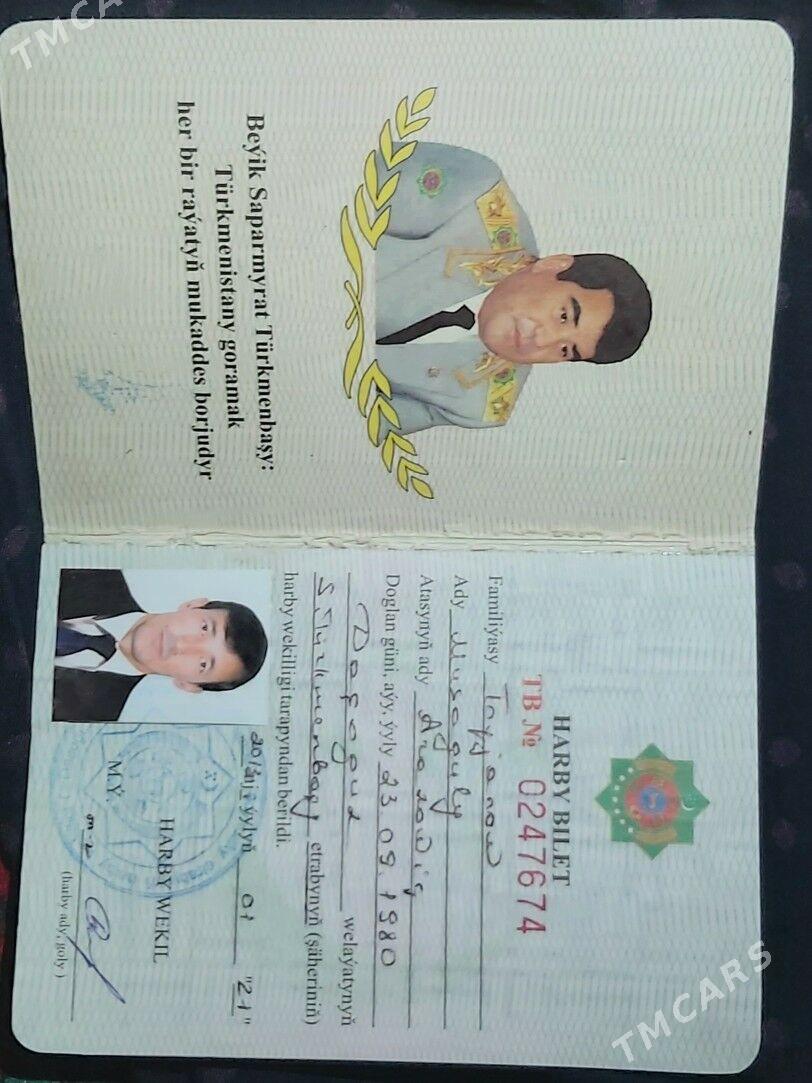 TMCARS
Beýik Saparmyrat Türkmenbaşy:
Türkmenistany goramak
her bir raýatyň mukaddes borjudyr
HARBY BILET
TB № 0247674
Familiýasy Taýjanow
Ady Musaguly
Atasynyň ady
Doglan güni, aýy, ýyly 23.09.1980
Daşoguz welaýatynyň
S. Türkmenbaşy etrabynyň (şäheriniň)
harby wekilligi tarapyndan berildi.
ýylyň 01 "21"
HARBY WEKIL
M.Ý.
(harby ady, goly)
TMCARS